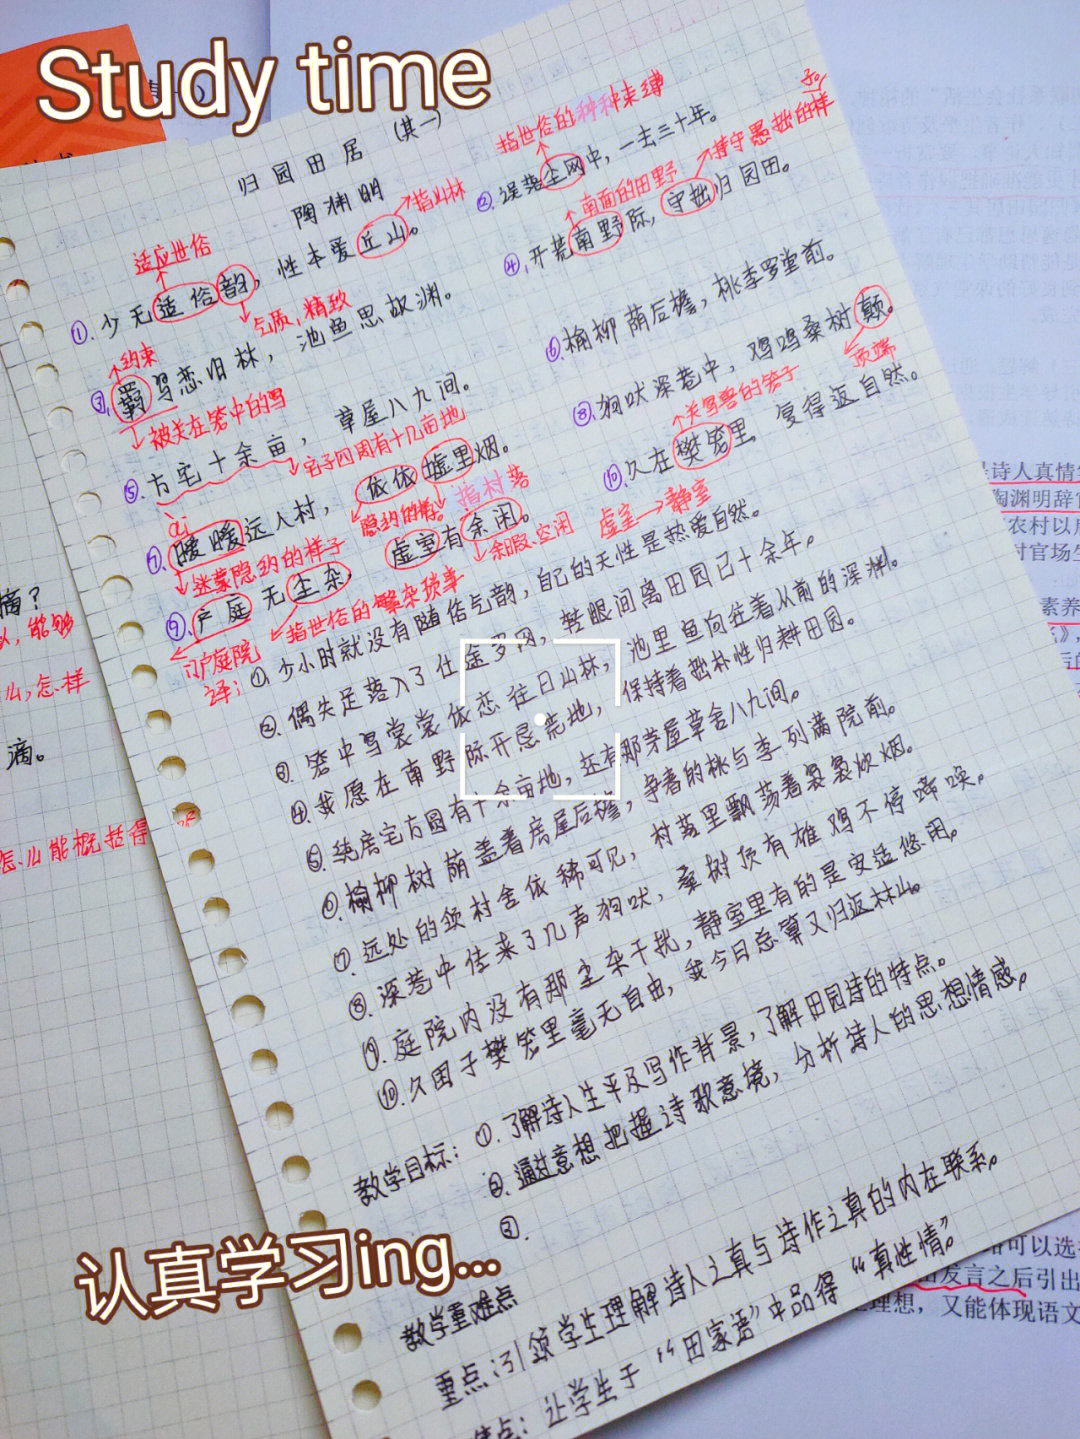 Study time
归园田居（其一）
陶渊明
指世俗的种种束缚
持守愚拙的样子。
适应世俗
指山林
南面的田野
①.少无适俗韵，性本爱丘山。
②.误落尘网中，一去三十年。
气质，精致
约束
③.羁鸟恋旧林，池鱼思故渊。
④.开荒南野际，守拙归园田。
被关在笼中的鸟
⑤.方宅十余亩，草屋八九间。
⑥.榆柳荫后檐，桃李罗堂前。
宅子四周有十几亩地
顶端
ài
⑦.暧暧远人村，依依墟里烟。
⑧.狗吠深巷中，鸡鸣桑树颠。
迷蒙隐约的样子
指村落
关鸟兽的笼子
⑨.户庭无尘杂，虚室有余闲。
⑩.久在樊笼里，复得返自然。
门户庭院
指世俗的繁杂琐事
余暇、空闲
虚室→静室
译：①.少小时就没有随俗气韵，自己的天性是热爱自然。
②.偶失足落入了仕途罗网，转眼间离田园已十余年。
③.笼中鸟常常依恋往日山林，池里鱼向往着从前的深渊。
④.我愿在南野际开垦荒地，保持着拙朴性归耕田园。
⑤.绕房宅方圆有十余亩地，还有那茅屋草舍八九间。
⑥.榆柳树荫盖着房屋后檐，争春的桃与李列满院前。
⑦.远处的领村舍依稀可见，村落里飘荡着袅袅炊烟。
⑧.深巷中传来了几声狗吠，桑树顶有雄鸡不停啼唤。
⑨.庭院内没有那尘杂干扰，静室里有的是安适悠闲。
⑩.久困于樊笼里毫无自由，我今日总算又归返林山。
教学目标：①.了解诗人生平及写作背景，了解田园诗的特点。
②.通过意想把握诗歌意境，分析诗人的思想情感。
③.
教学重难点
重点：引领学生理解诗人之真与诗作之真的内在联系。
难点：让学生于“田家语”中品得“真性情”。
认真学习ing...
滴？
能够
怎样
滴。
怎么能概括得
是诗人真情
陶渊明辞官
农村以
村官场生
素养
可以选
发言之后引出
理想，又能体现语文